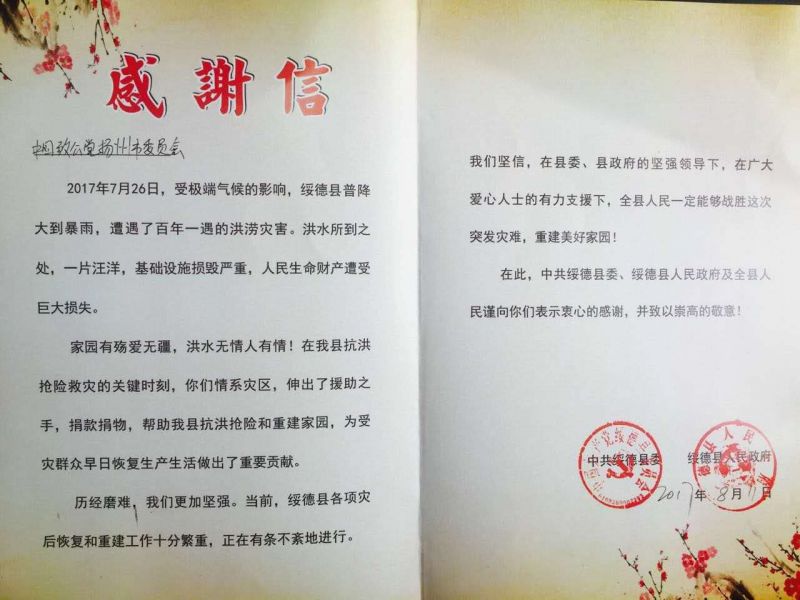 感謝信
中国致公党扬州市委员会
2017年7月26日，受极端气候的影响，绥德县普降
大到暴雨，遭遇了百年一遇的洪涝灾害。洪水所到之
处，一片汪洋，基础设施损毁严重，人民生命财产遭受
巨大损失。
家园有殇爱无疆，洪水无情人有情！在我县抗洪
抢险救灾的关键时刻，你们情系灾区，伸出了援助之
手，捐款捐物，帮助我县抗洪抢险和重建家园，为受
灾群众早日恢复生产生活做出了重要贡献。
历经磨难，我们更加坚强。当前，绥德县各项灾
后恢复和重建工作十分繁重，正在有条不紊地进行。
我们坚信，在县委、县政府的坚强领导下，在广大
爱心人士的有力支援下，全县人民一定能够战胜这次
突发灾难，重建美好家园！
在此，中共绥德县委、绥德县人民政府及全县人
民谨向你们表示衷心的感谢，并致以崇高的敬意！
中共绥德县委 绥德县人民政府
2017年8月11日